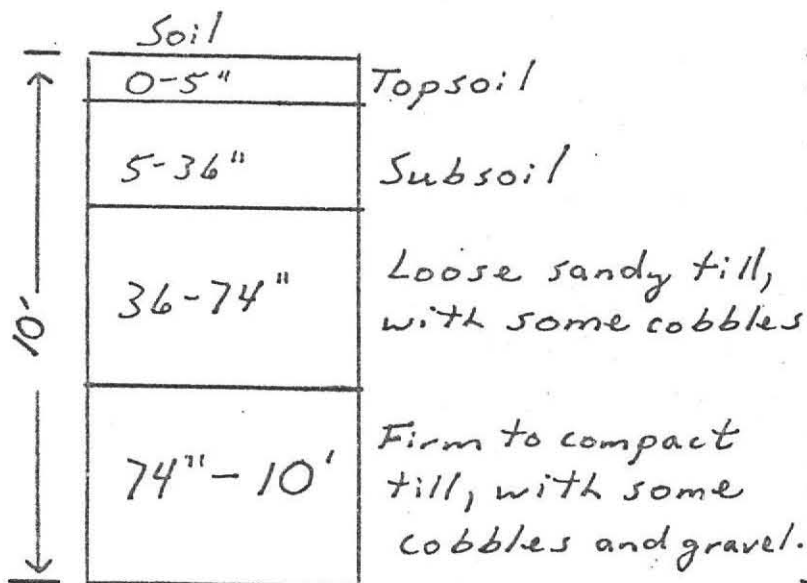 Soil
0-5" Topsoil
5-36" Subsoil
36-74" Loose sandy till,
with some cobbles
74"-10' Firm to compact
till, with some
cobbles and gravel.
10'